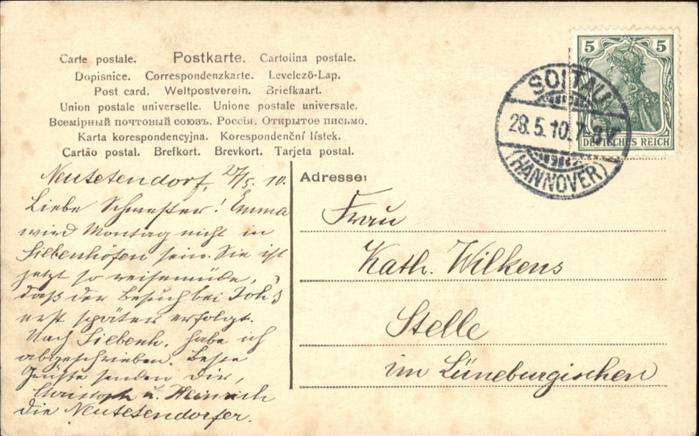 Carte postale. Postkarte. Cartolina postale.
Dopisnice. Correspondenzkarte. Levelező-Lap.
Post card. Weltpostverein. Briefkaart.
Union postale universelle. Unione postale universale.
Всемірный почтовый союзъ. Россія. Открытое письмо.
Karta korespondencyjna. Korespondenční lístek.
Cartão postal. Brefkort. Brevkort. Tarjeta postal.
5 5
DEUTSCHES REICH
SOLTAU
28.5.10. 7-8V
(HANNOVER)
Neutetendorf, 27/5. 10.
Liebe Schwester! Emma
wird Montag nicht in
Siebenhöfen sein. Sie ist
jetzt so reisemüde,
daß der Besuch bei Joh's
erst später erfolgt.
Nach Siebenh. habe ich
abgeschrieben. Beste
Grüße senden Dir,
u. Heinrich
die Neutetendorfer.
Adresse:
Frau
Kath. Wilkens
Stelle
im Lüneburgischen